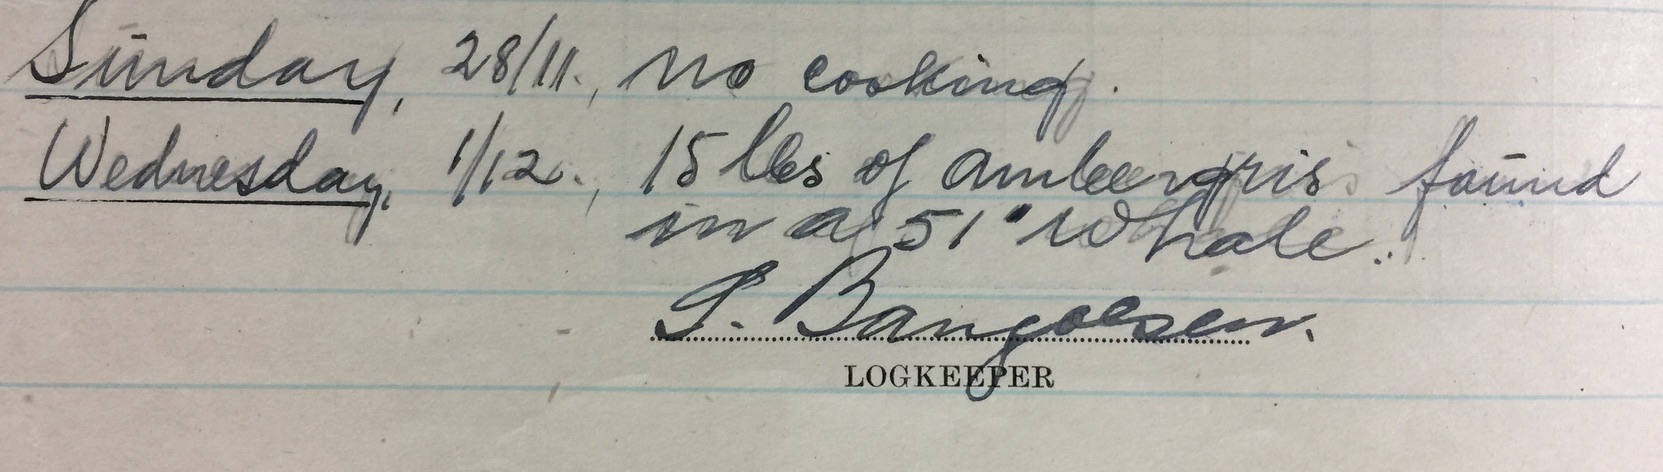 Sunday, 28/11., no cooking.
Wednesday, 1/12., 15 lbs of ambergris found
in a 51' whale.
LOGKEEPER